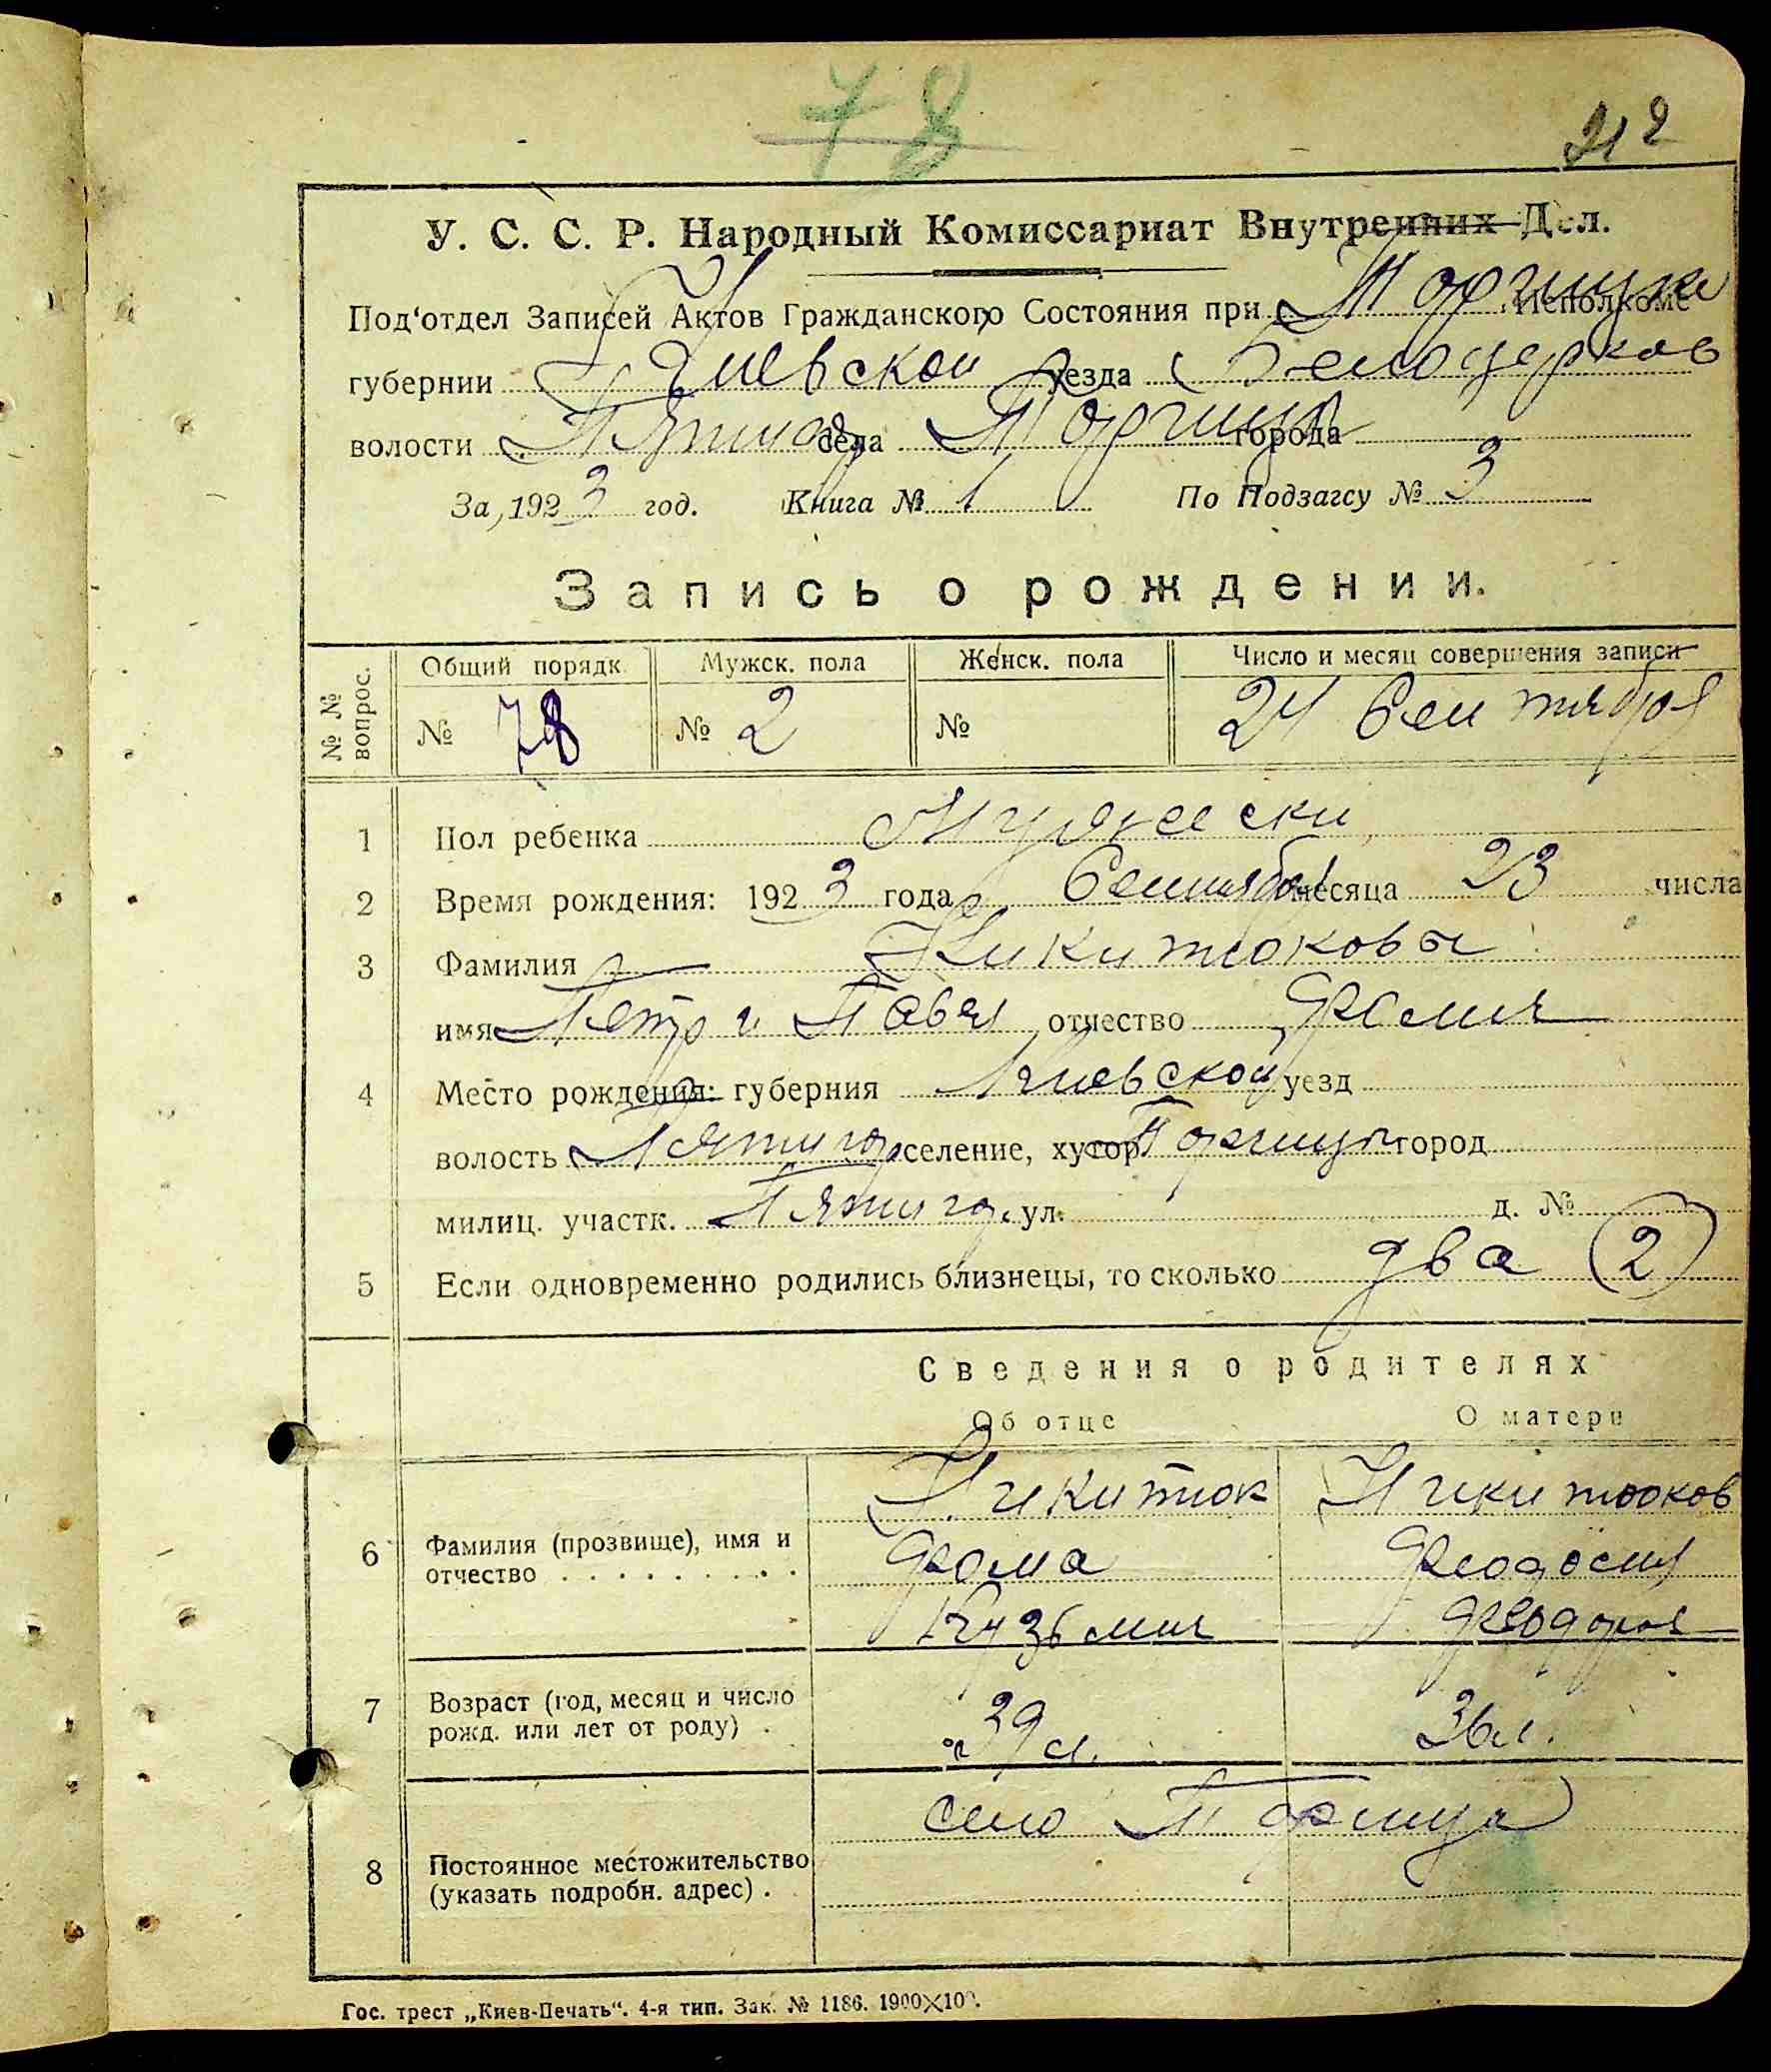 78
212
У. С. С. Р. Народный Комиссариат Внутренних Дел.
Под‘отдел Записей Актов Гражданского Состояния при Торчицк. Исполкоме
губернии Киевской уезда Белоцерков
волости Пятигор села Торчица города
За 1923 год. Книга № 1 По Подзагсу № 3
Запись о рождении.
№ № вопрос. Общий порядк. Мужск. пола Женск. пола Число и месяц совершения записи
№ 78 № 2 № 24 Сентября
1 Пол ребенка Мужески
2 Время рождения: 1923 года Сентября месяца 23 числа
3 Фамилия Никитюковы
имя Петр и Павел отчество Фомич
4 Место рождения: губерния Киевской уезд
волость Пятигор селение, хутор Торчица город
милиц. участк. Пятигор. ул. д. №
5 Если одновременно родились близнецы, то сколько два (2)
Сведения о родителях
Об отце О матери
Никитюк Никитюков
6 Фамилия (прозвище), имя и отчество . . . . . . . . . Фома Феодосия
Кузьмич Феодоров
7 Возраст (год, месяц и число рожд. или лет от роду) . 39 л. 36 л.
село Торчица
8 Постоянное местожительство (указать подробн. адрес) .
Гос. трест „Киев-Печать“. 4-я тип. Зак. № 1186. 1900×100.